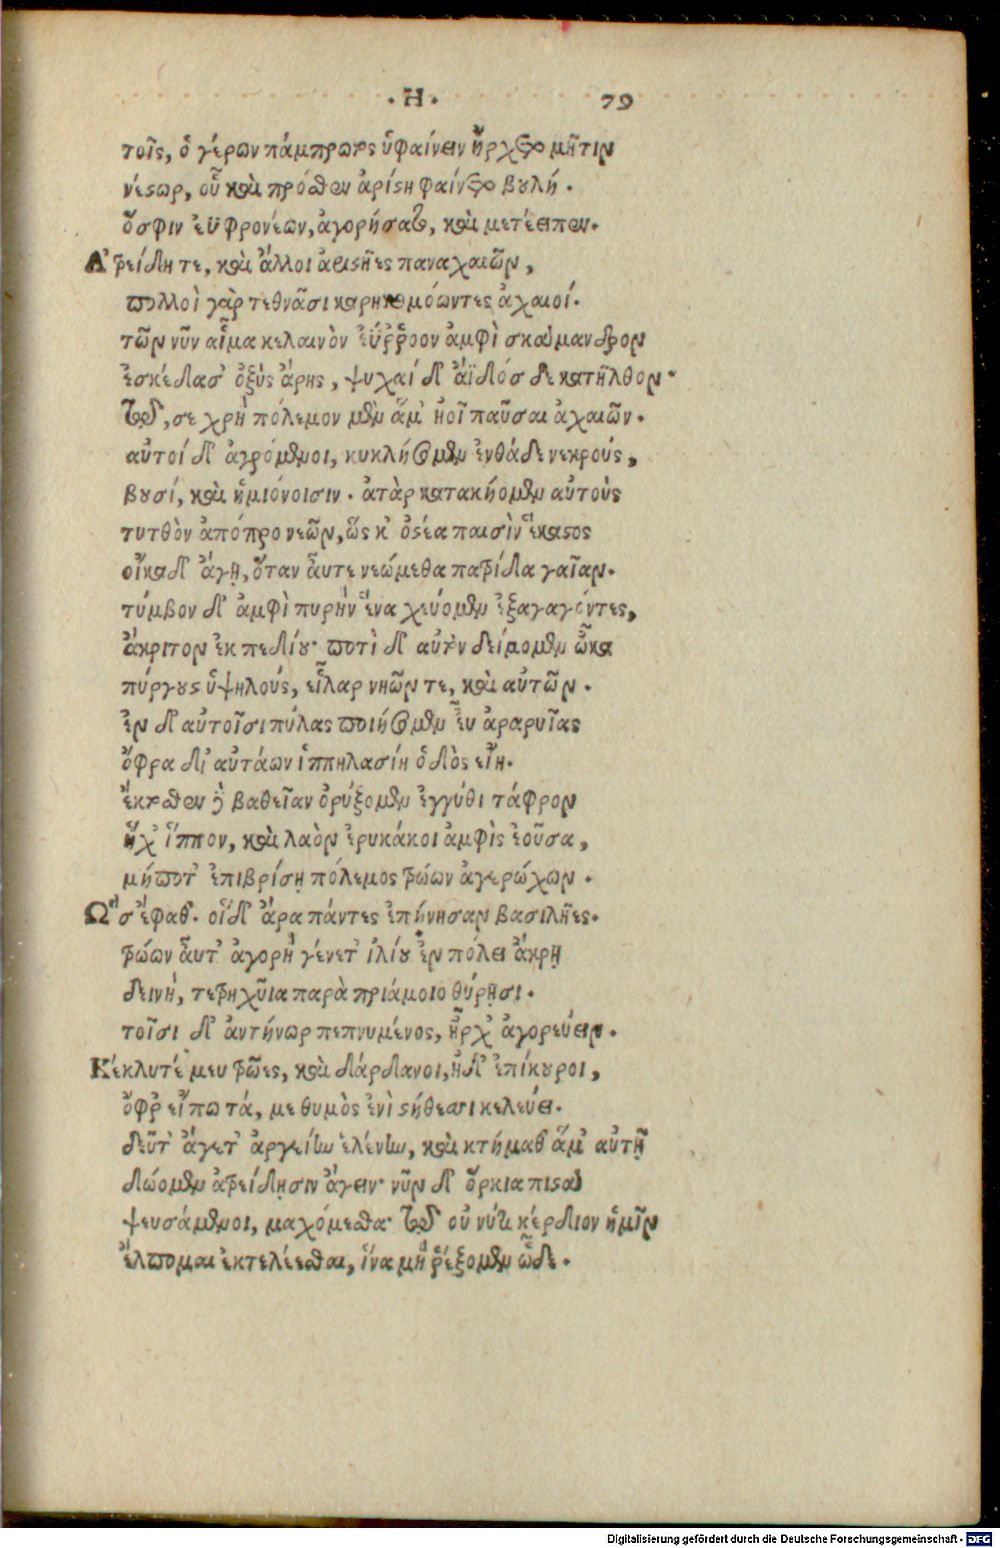 · Η · 79
τοῖς, ὁ γέρων πάμπρωτος ὑφαίνειν ἤρχετο μῆτιν
νέστωρ, οὗ καὶ πρόσθεν ἀρίστη φαίνετο βουλή.
ὅσφιν ἐϋφρονέων, ἀγορήσατο, καὶ μετέειπεν.
Ἀτρείδητε, καὶ ἄλλοι ἀριστῆες παναχαιῶν,
πολλοὶ γὰρ τεθνᾶσι καρηκομόωντες ἀχαιοί.
τῶν νῦν αἷμα κελαινὸν ἐΰῤῥοον ἀμφὶ σκάμανδρον
ἐσκέδασ' ὀξὺς ἄρης, ψυχαί δ' ἄϊδόσδε κατῆλθον·
τῷ, σε χρὴ πόλεμον μὲν ἅμ' ἠοῖ παῦσαι ἀχαιῶν.
αὐτοί δ' ἀγρόμενοι, κυκλήσομεν ἐνθάδε νεκρούς,
βουσί, καὶ ἡμιόνοισιν. ἀτὰρ κατακήομεν αὐτοὺς
τυτθὸν ἀπόπρο νεῶν, ὥς κ' ὀστέα παισὶν ἕκαστος
οἴκαδ' ἄγῃ, ὅταν αὖτε νεώμεθα πατρίδα γαῖαν.
τύμβον δ' ἀμφὶ πυρὴν ἕνα χεύομεν ἐξαγαγόντες,
ἄκριτον ἐκ πεδίου· ποτὶ δ' αὐτὸν δείμομεν ὦκα
πύργους ὑψηλούς, εἶλαρ νηῶν τε, καὶ αὐτῶν.
ἐν δ' αὐτοῖσι πύλας ποιήσομεν εὖ ἀραρυῖας
ὄφρα δι' αὐτάων ἱππηλασίη ὁδὸς εἴη.
ἔκτοσθεν δὲ βαθεῖαν ὀρύξομεν ἐγγύθι τάφρον
ἥχ' ἵππον, καὶ λαὸν ἐρυκάκοι ἀμφὶς ἐοῦσα,
μήποτ' ἐπιβρίσῃ πόλεμος τρώων ἀγερώχων.
Ὣς ἔφαθ'. οἱ δ' ἄρα πάντες ἐπῄνησαν βασιλῆες.
τρώων αὖτ' ἀγορὴ γένετ' ἰλίου ἐν πόλει ἄκρῃ
δεινὴ, τετρηχῦια παρὰ πριάμοιο θύρῃσι.
τοῖσι δ' ἀντήνωρ πεπνυμένος, ἦρχ' ἀγορεύειν.
Κέκλυτέ μευ τρῶες, καὶ δάρδανοι, ἠδ' ἐπίκουροι,
ὄφρ' εἴπω τά, με θυμὸς ἐνὶ στήθεσσι κελεύει.
δεῦτ' ἄγετ' ἀργείην ἑλένην, καὶ κτήμαθ' ἅμ' αὐτῇ
δώομεν ἀτρείδῃσιν ἄγειν· νῦν δ' ὅρκια πιστὰ
ψευσάμενοι, μαχόμεσθα· τῷ οὐ νύτι κέρδιον ἡμῖν
ἔλπομαι ἐκτελέεσθαι, ἵνα μὴ ῥέξομεν ὧδε.
Digitalisierung gefördert durch die Deutsche Forschungsgemeinschaft · DFG